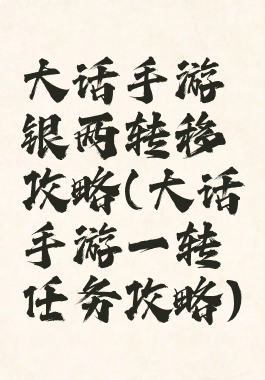 大话手游
银两转移
攻略(大话
手游一转
任务攻略)